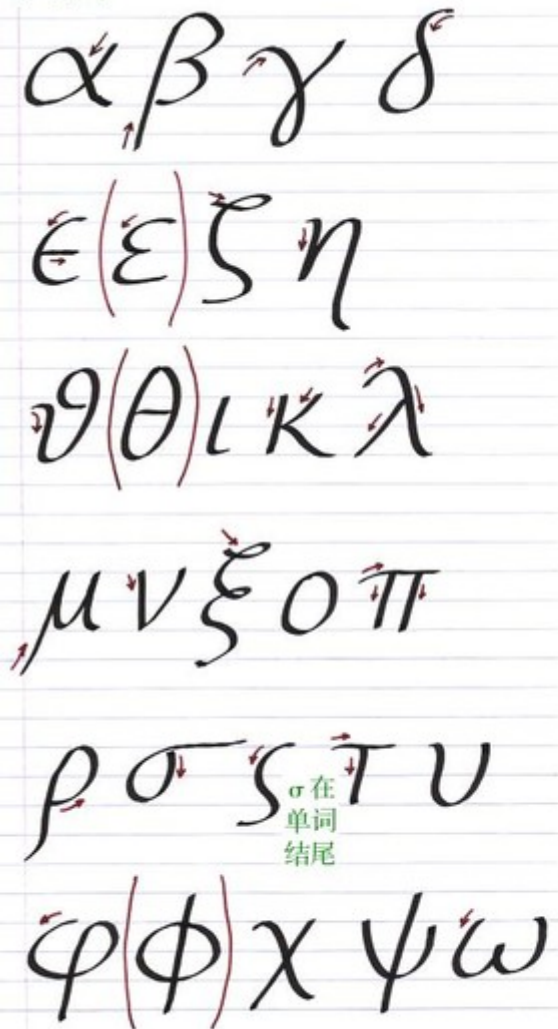 α β γ δ
ϵ (ε) ζ η
ϑ (θ) ι κ λ
μ ν ξ ο π
ρ σ ς τ υ
σ 在
单词
结尾
φ (ϕ) χ ψ ω